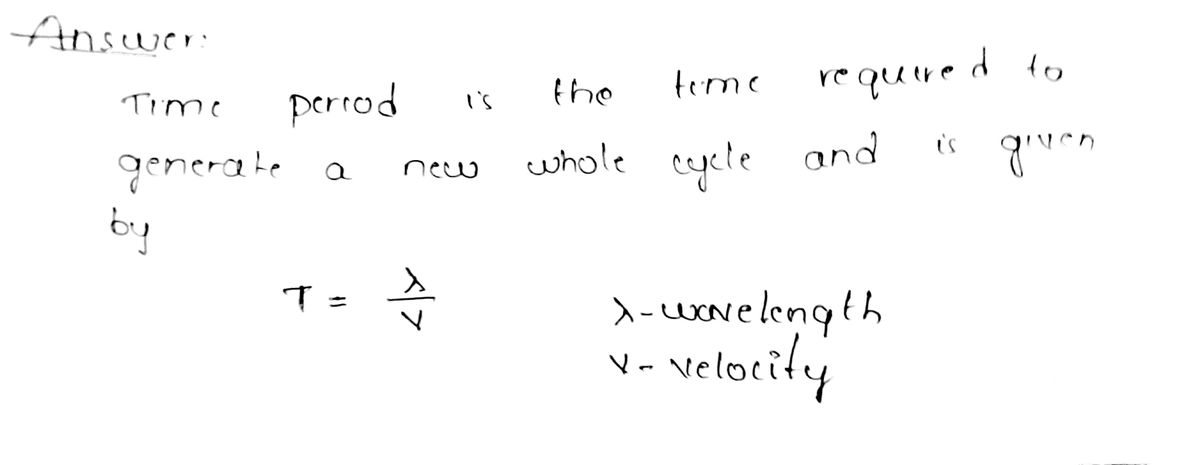 Answer:
Time period is the time required to
generate a new whole cycle and is given
by
T = λ/v
λ - wavelength
v - velocity